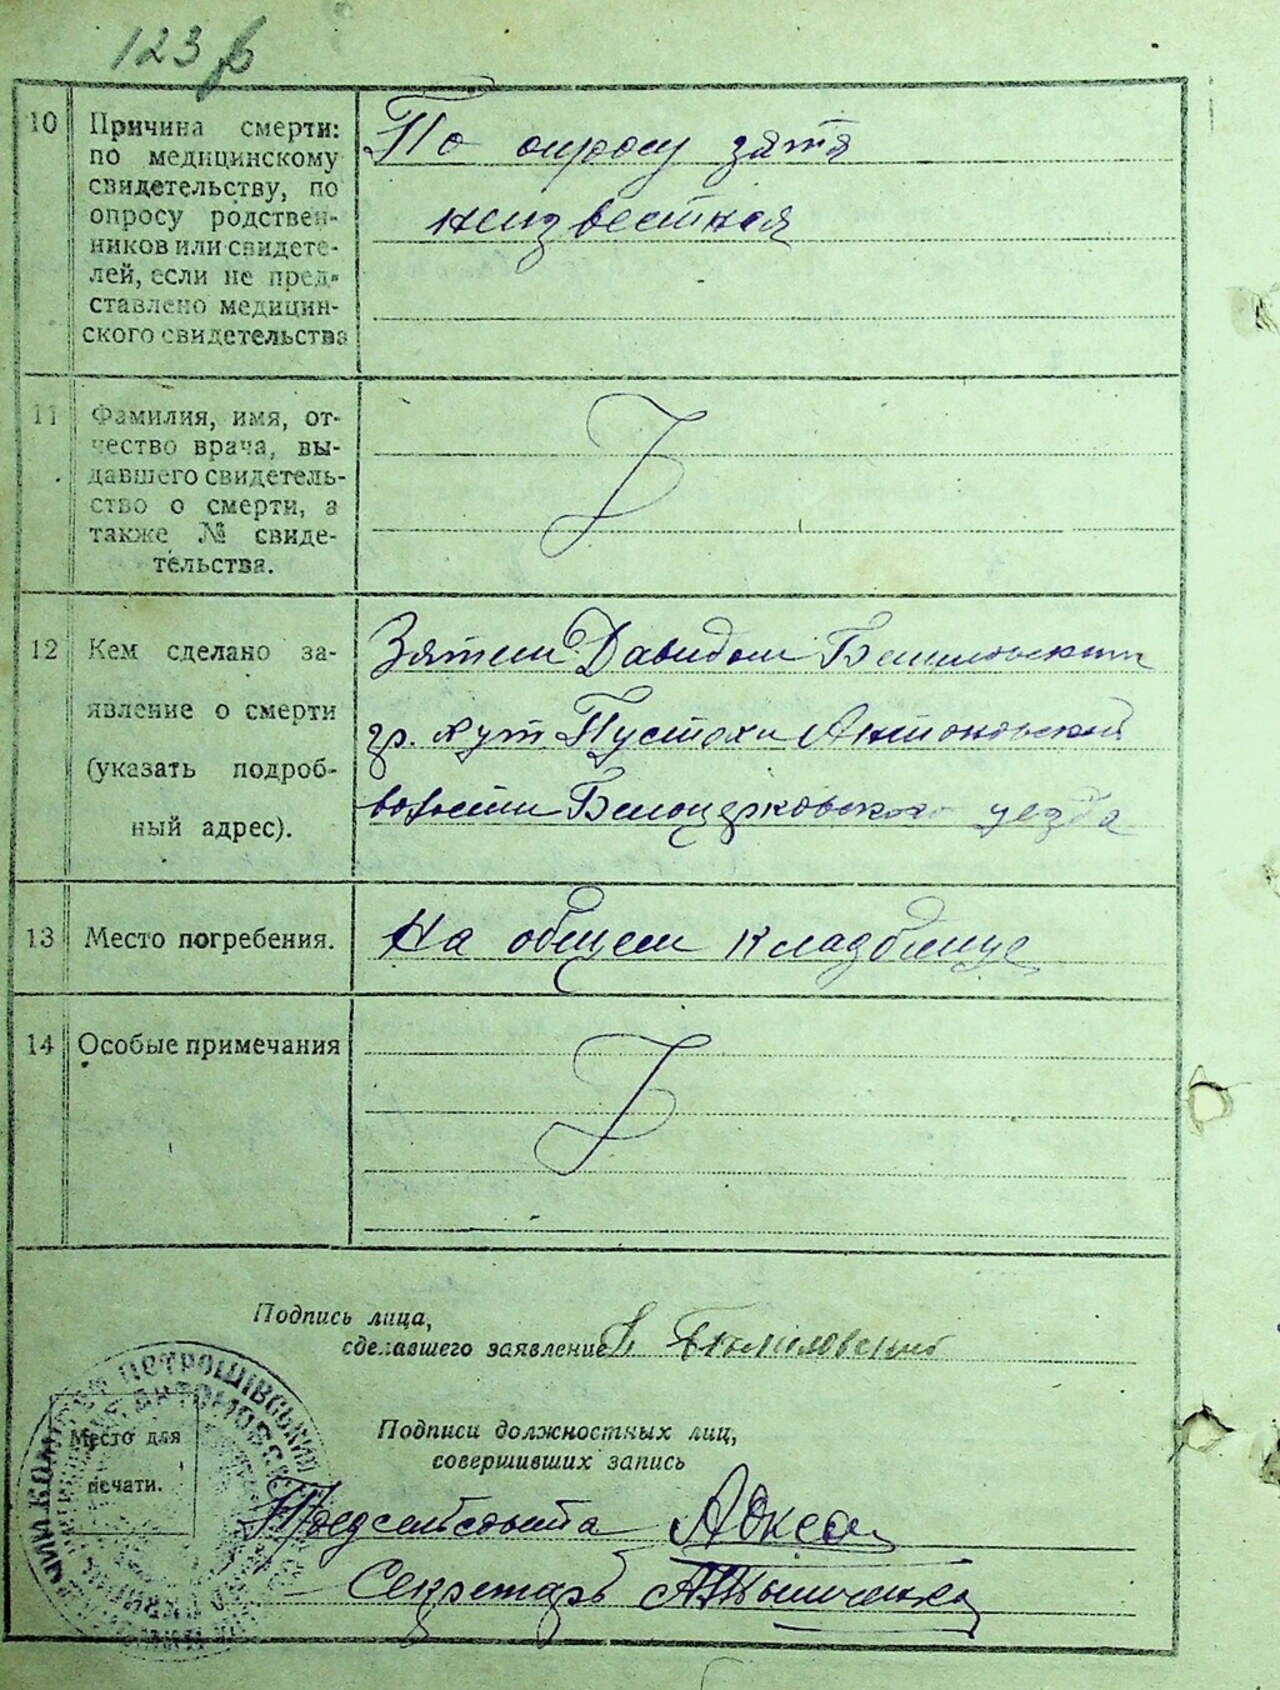 123
10 Причина смерти:
по медицинскому
свидетельству, по
опросу родствен-
ников или свидете-
лей, если не пред-
ставлено медицин-
ского свидетельства
По опросу зятя
неизвестная
11 Фамилия, имя, от-
чество врача, вы-
давшего свидетель-
ство о смерти, а
также № свиде-
тельства.
12 Кем сделано за-
явление о смерти
(указать подроб-
ный адрес).
Зятем Давидом
гр. хут. Пустохи Антоновской
волости Белоцерковского уезда
13 Место погребения.
На общем кладбище
14 Особые примечания
Подпись лица,
сделавшего заявление
Место для
печати.
ПЕТРОШІВСЬКИЙ
Подписи должностных лиц,
совершивших запись
Предсельсовета
Секретарь